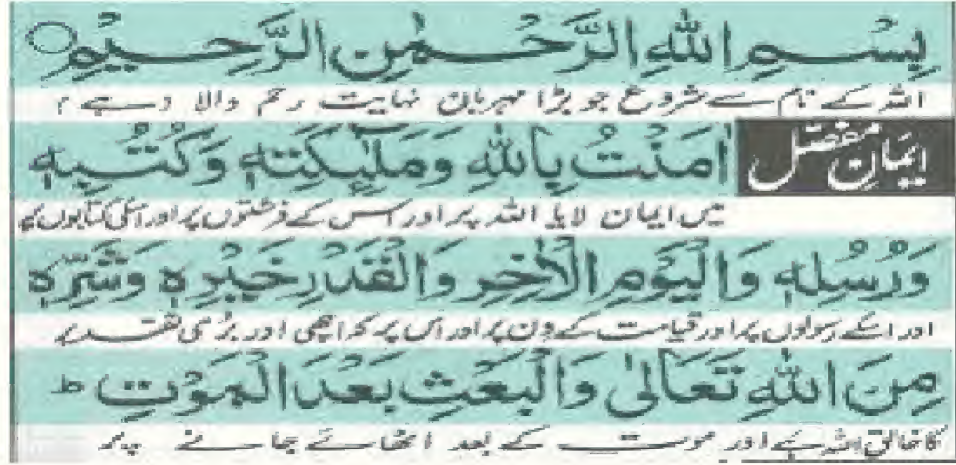 بِسْمِ اللهِ الرَّحْمٰنِ الرَّحِيْمِ
اللہ کے نام سے شروع جو بڑا مہربان نہایت رحم والا ہے
ایمانِ مفصل اٰمَنْتُ بِاللهِ وَمَلٰٓئِكَتِهٖ وَكُتُبِهٖ
میں ایمان لایا اللہ پر اور اس کے فرشتوں پر اور اسکی کتابوں پر
وَرُسُلِهٖ وَالْيَوْمِ الْاٰخِرِ وَالْقَدْرِ خَيْرِهٖ وَشَرِّهٖ
اور اسکے رسولوں پر اور قیامت کے دن پر اور اس پر کہ اچھی اور بری تقدیر
مِنَ اللهِ تَعَالٰى وَالْبَعْثِ بَعْدَ الْمَوْتِ ط
کا خالق اللہ ہے اور موت کے بعد اٹھائے جانے پر